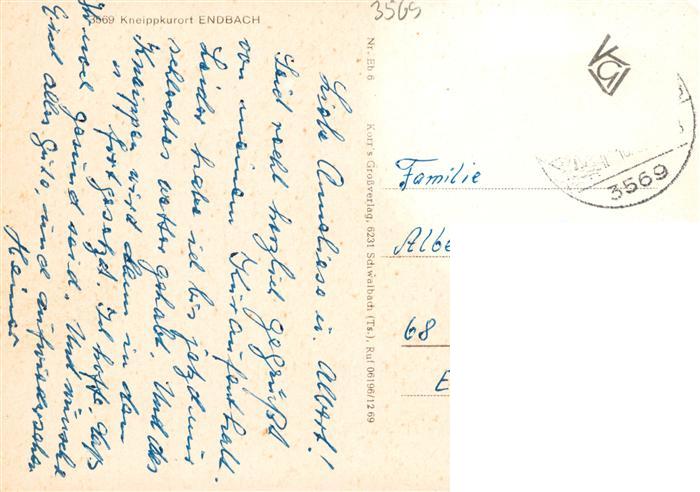 3569 Kneippkurort ENDBACH
Liebe Anneliese u. Albert!
Seid recht herzlich gegrüßt
von meinem Kuraufenthalt.
Leider habe ich bis jetzt nur
schlechtes wetter gehabt. Und das
Kneippen wird dann in den
fortgesetzt. Ich hoffe, daß
Ihr wol gesund seid. Und wünsche
Euch alles Gute, und aufwiedersehen
Heiner
Nr. Eb 6
Korr's Großverlag, 6231 Schwalbach (Ts.), Ruf 06196/1269
3569
3569
Familie
Albe
68
E